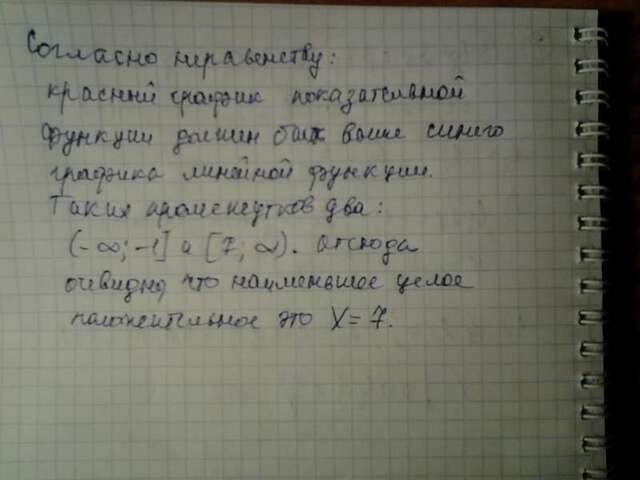 Согласно неравенству:
красный график показательной
функции должен быть выше синего
графика линейной функции.
Таких промежутков два:
(-∞; -1] и [7; ∞). отсюда
очевидно, что наименьшее целое
положительное это X = 7.